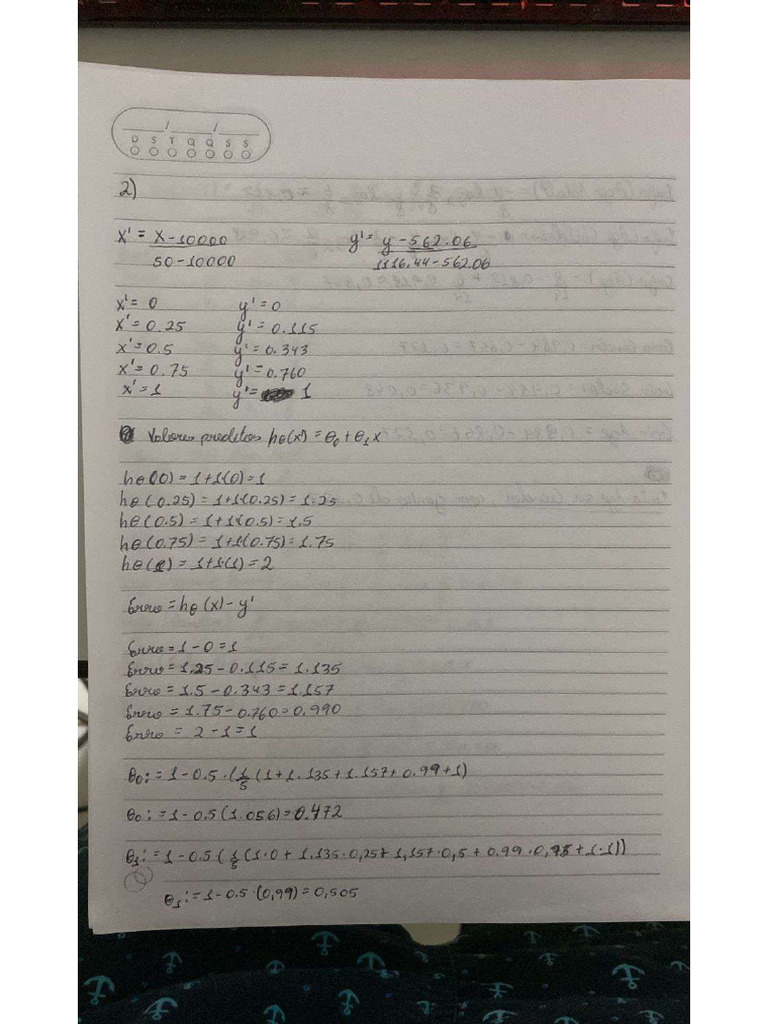 D S T Q Q S S
2)
x' = x - 10000 / 50 - 10000    y' = y - 562.06 / 1116.44 - 562.06
x' = 0    y' = 0
x' = 0.25    y' = 0.115
x' = 0.5    y' = 0.343
x' = 0.75    y' = 0.760
x' = 1    y' = 1
Valores preditos hθ(x) = θ₀ + θ₁x
hθ(0) = 1+1(0) = 1
hθ(0.25) = 1+1(0.25) = 1.25
hθ(0.5) = 1+1(0.5) = 1.5
hθ(0.75) = 1+1(0.75) = 1.75
hθ(1) = 1+1(1) = 2
Erro = hθ(x) - y'
Erro = 1 - 0 = 1
Erro = 1.25 - 0.115 = 1.135
Erro = 1.5 - 0.343 = 1.157
Erro = 1.75 - 0.760 = 0.990
Erro = 2 - 1 = 1
θ₀ := 1 - 0.5 · (1/5 (1 + 1.135 + 1.157 + 0.99 + 1)
θ₀ := 1 - 0.5 (1.056) = 0.472
θ₁ := 1 - 0.5 (1/5 (1·0 + 1.135·0,25 + 1,157·0,5 + 0.99·0,75 + 1·1))
θ₁ := 1 - 0.5·(0,99) = 0,505